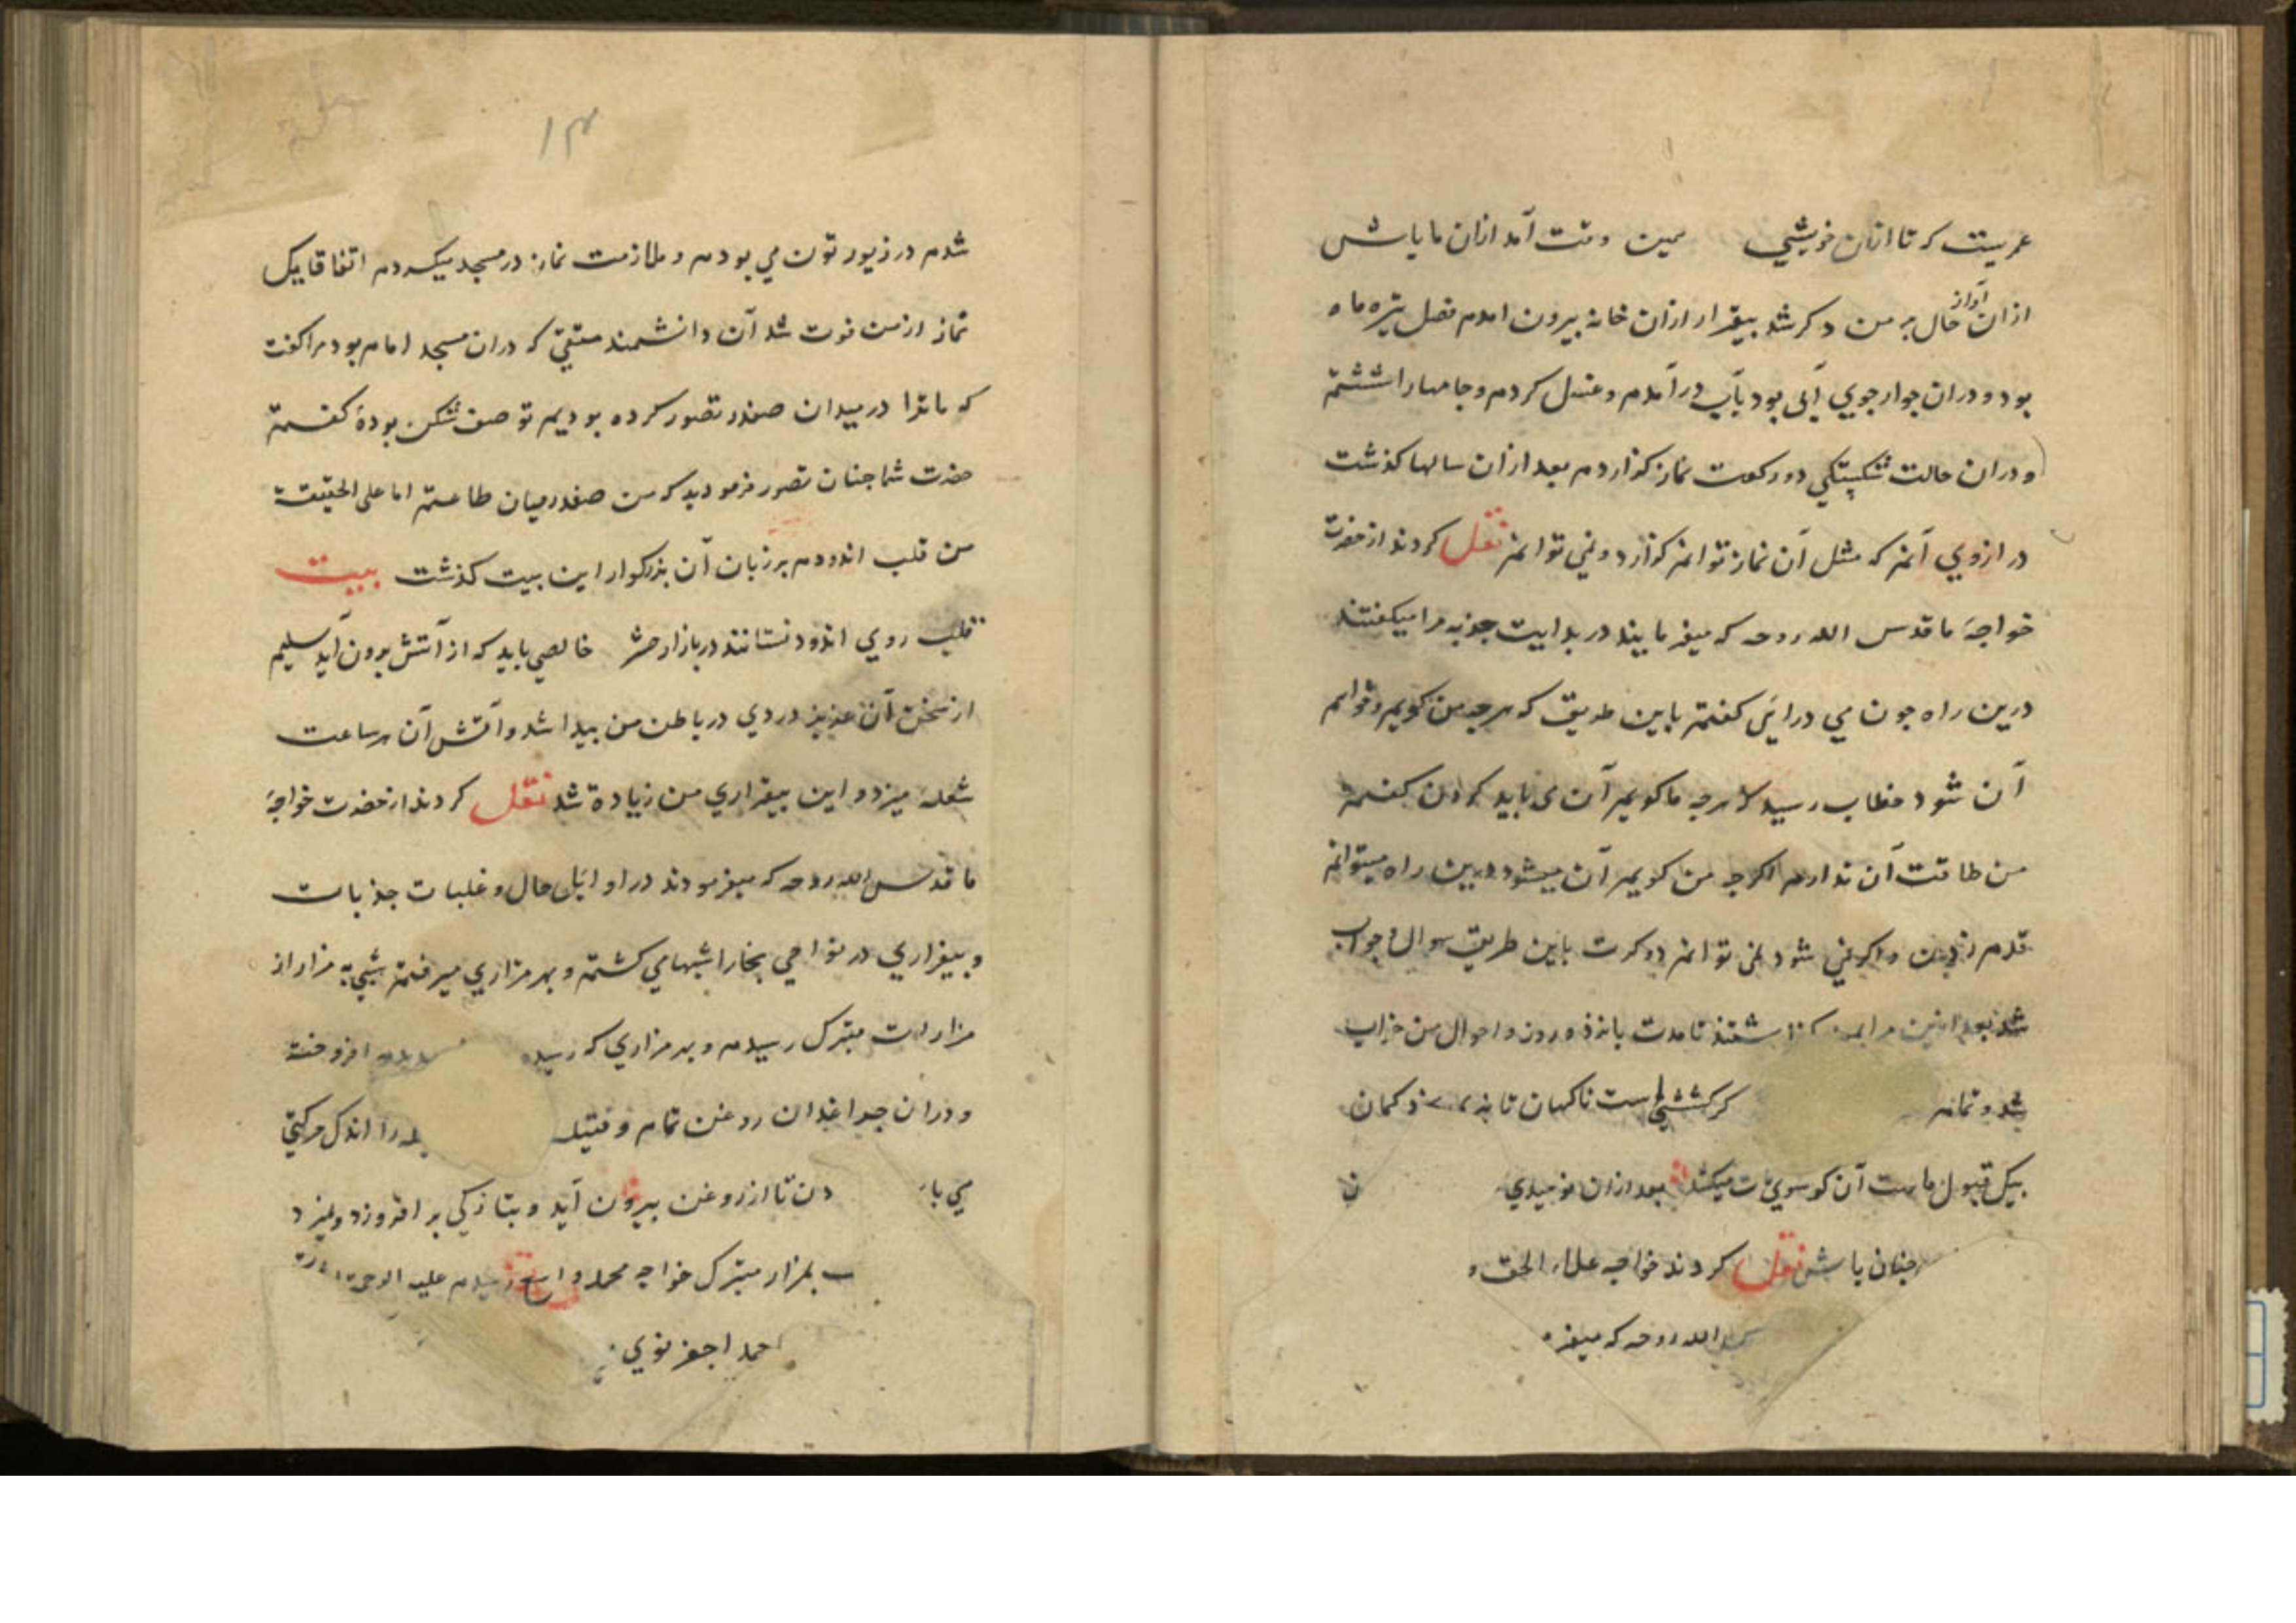 عمریست که تا ازان خویشی همین وقت آمد ازان ما باش
ازان آواز حال بر من دکر شد بیقرار ازان خانه بیرون امدم فصل تیره ماه
بود و دران جوار جوی آبی بود بآب درآمدم و غسل کردم و جامها را ششتم
و دران حالت شکستکی دو رکعت نماز کزاردم بعد ازان سالها کذشت
در ارزوی آنم که مثل آن نماز توانم کزارد و نمی توانم نقل کردند از حضرت
خواجهٔ ما قدس الله روحه که میفرمایند در بدایت جذبه مرا میکفتند
درین راه چون می درایی کفتم باین طریق که هرچه من کویم و خواهم
آن شود خطاب رسید که هرچه ما کویم آن می باید کردن کفتم
من طاقت آن ندارم اکر هرچه من کویم آن میشود درین راه میتوانم
قدم زدن و اکر نی شود نمی توانم دو کرت باین طریق سوال و جواب
شد بعد ازین مرا بمن کذاشتند تا مدت پانزده روز و احوال من خراب
شد و تمام کر کششی است ناکهان تا نه کمان
بیک قبول ماست آن کو سوی ات میکشد بعد ازان نومیدی
چنان باش نقل کردند خواجه علاء الحق و
الله روحه که میفر
۱۴
شدم در زیورتون می بودم و ملازمت نماز در مسجد میکردم اتفاقا یک
نماز از من فوت شد آن دانشمند متقی که دران مسجد امام بود مرا کفت
که ما ترا در میدان صفدر تصور کرده بودیم تو صف شکن بودهٔ کفتم
حضرت شما چنان تصور فرمودید که من صفدر میان طاعتم اما علی الحقیقة
من قلب اندودم بر زبان آن بزرکوار این بیت کذشت بیت
قلب روی اندود نستانند در بازار حشر خالصی باید که از آتش برون آید سلیم
از سخن آن عزیز دردی در باطن من پیدا شد و آتش آن هر ساعت
شعله میزد و این بیقراری من زیاده شد نقل کردند از حضرت خواجهٔ
ما قدس الله روحه که میفرمودند در اوایل حال و غلبات جذبات
و بیقراری در نواحی بخارا شبها می کشتم و بهر مزاری میرفتم شبی به مزار از
مزارات متبرک رسیدم و بهر مزاری که رسیدم افروخته
و دران چراغدان روغن تمام و فتیله را اندک حرکتی
می با دن تا از روغن بیرون آید و بتازکی بر افروزد و نمیرد
بمزار متبرک خواجه محمد واسع رسیدم علیه الرحمة
احمد اجفرنوی